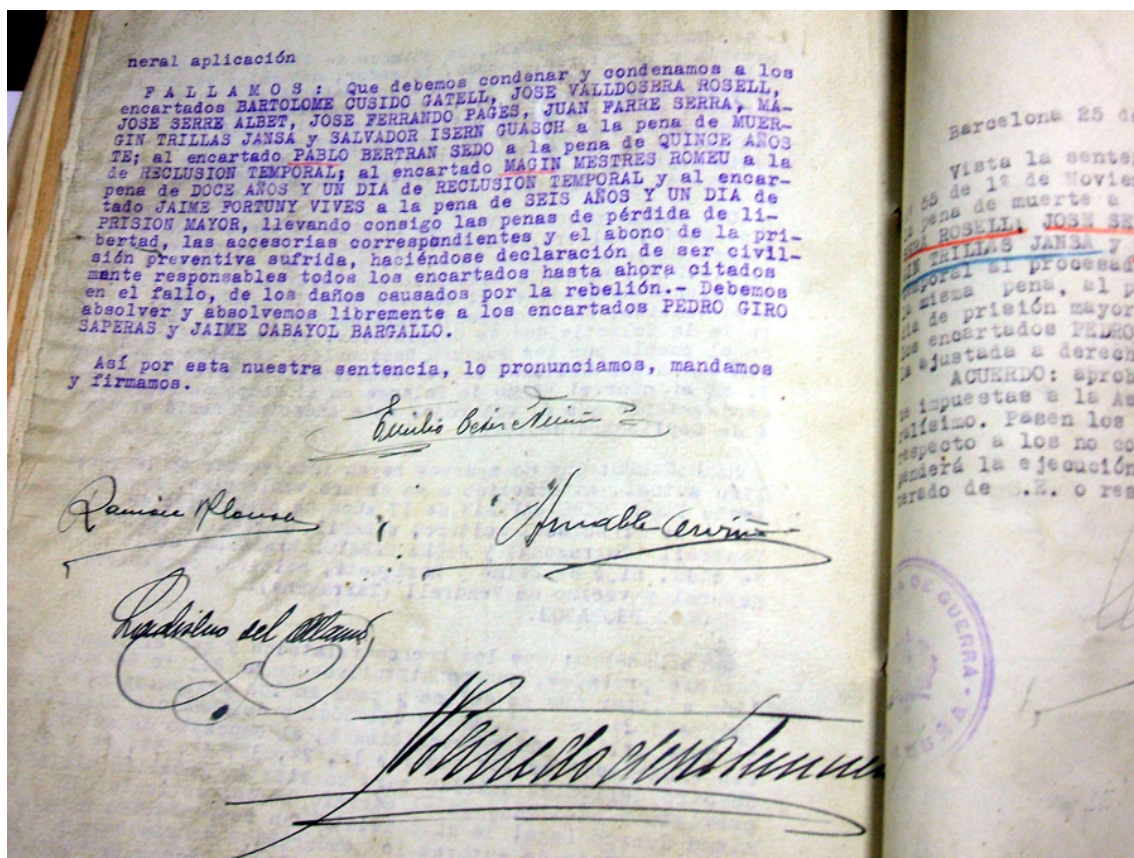 neral aplicación
F A L L A M O S : Que debemos condenar y condenamos a los
encartados BARTOLOME CUSIDO GATELL, JOSE VALLDOSERA ROSELL,
JOSE SERRE ALBET, JOSE FERRANDO PAGES, JUAN FARRE SERRA, MA-
GIN TRILLAS JANSA y SALVADOR ISERN GUASCH a la pena de MUER-
TE; al encartado PABLO BERTRAN SEDO a la pena de QUINCE AÑOS
de RECLUSION TEMPORAL; al encartado MAGIN MESTRES ROMEU a la
pena de DOCE AÑOS Y UN DIA de RECLUSION TEMPORAL y al encar-
tado JAIME FORTUNY VIVES a la pena de SEIS AÑOS Y UN DIA de
PRISION MAYOR, llevando consigo las penas de pérdida de li-
bertad, las accesorias correspondientes y el abono de la pri-
sión preventiva sufrida, haciéndose declaración de ser civil-
mente responsables todos los encartados hasta ahora citados
en el fallo, de los daños causados por la rebelión.- Debemos
absolver y absolvemos libremente a los encartados PEDRO GIRO
SAPERAS y JAIME CABAYOL BARGALLO.
Así por esta nuestra sentencia, lo pronunciamos, mandamos
y firmamos.
Emilio
Ramón Alonso
Amable
Ladislao del Alamo
Barcelona 25 de
Vista la senten
55 de 1º de Noviem
pena de muerte a
ROSELL, JOSE SE
GIN TRILLAS JANSA y
temporal al procesad
misma pena, al p
dia de prisión mayor
los encartados PEDRO
la ajustada a derech
ACUERDO: aprob
impuestas a la As
ralísimo. Pasen los
respecto a los no co
penderá la ejecución
terado de S.E. o res
DE GUERRA